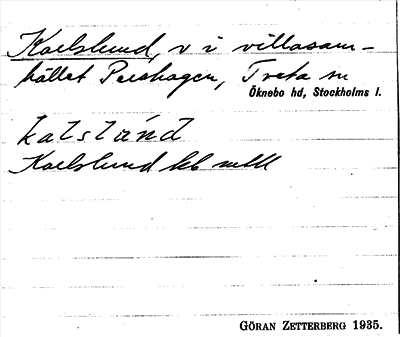 Karlslund, v i villasam-
hället Pershagen, Tveta sn
Öknebo hd, Stockholms l.
Karlslund
GÖRAN ZETTERBERG 1935.